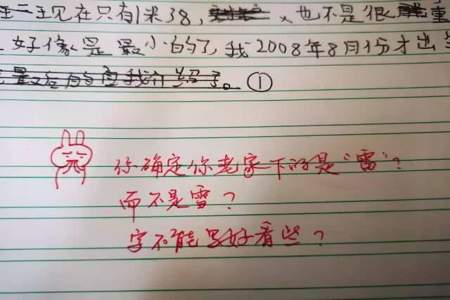 现在只有1米38，也不是很重
好像是最小的了，我2008年8月份才出
①
你确定你老家下的是“雷”？
而不是雪？
字不能写好看些？